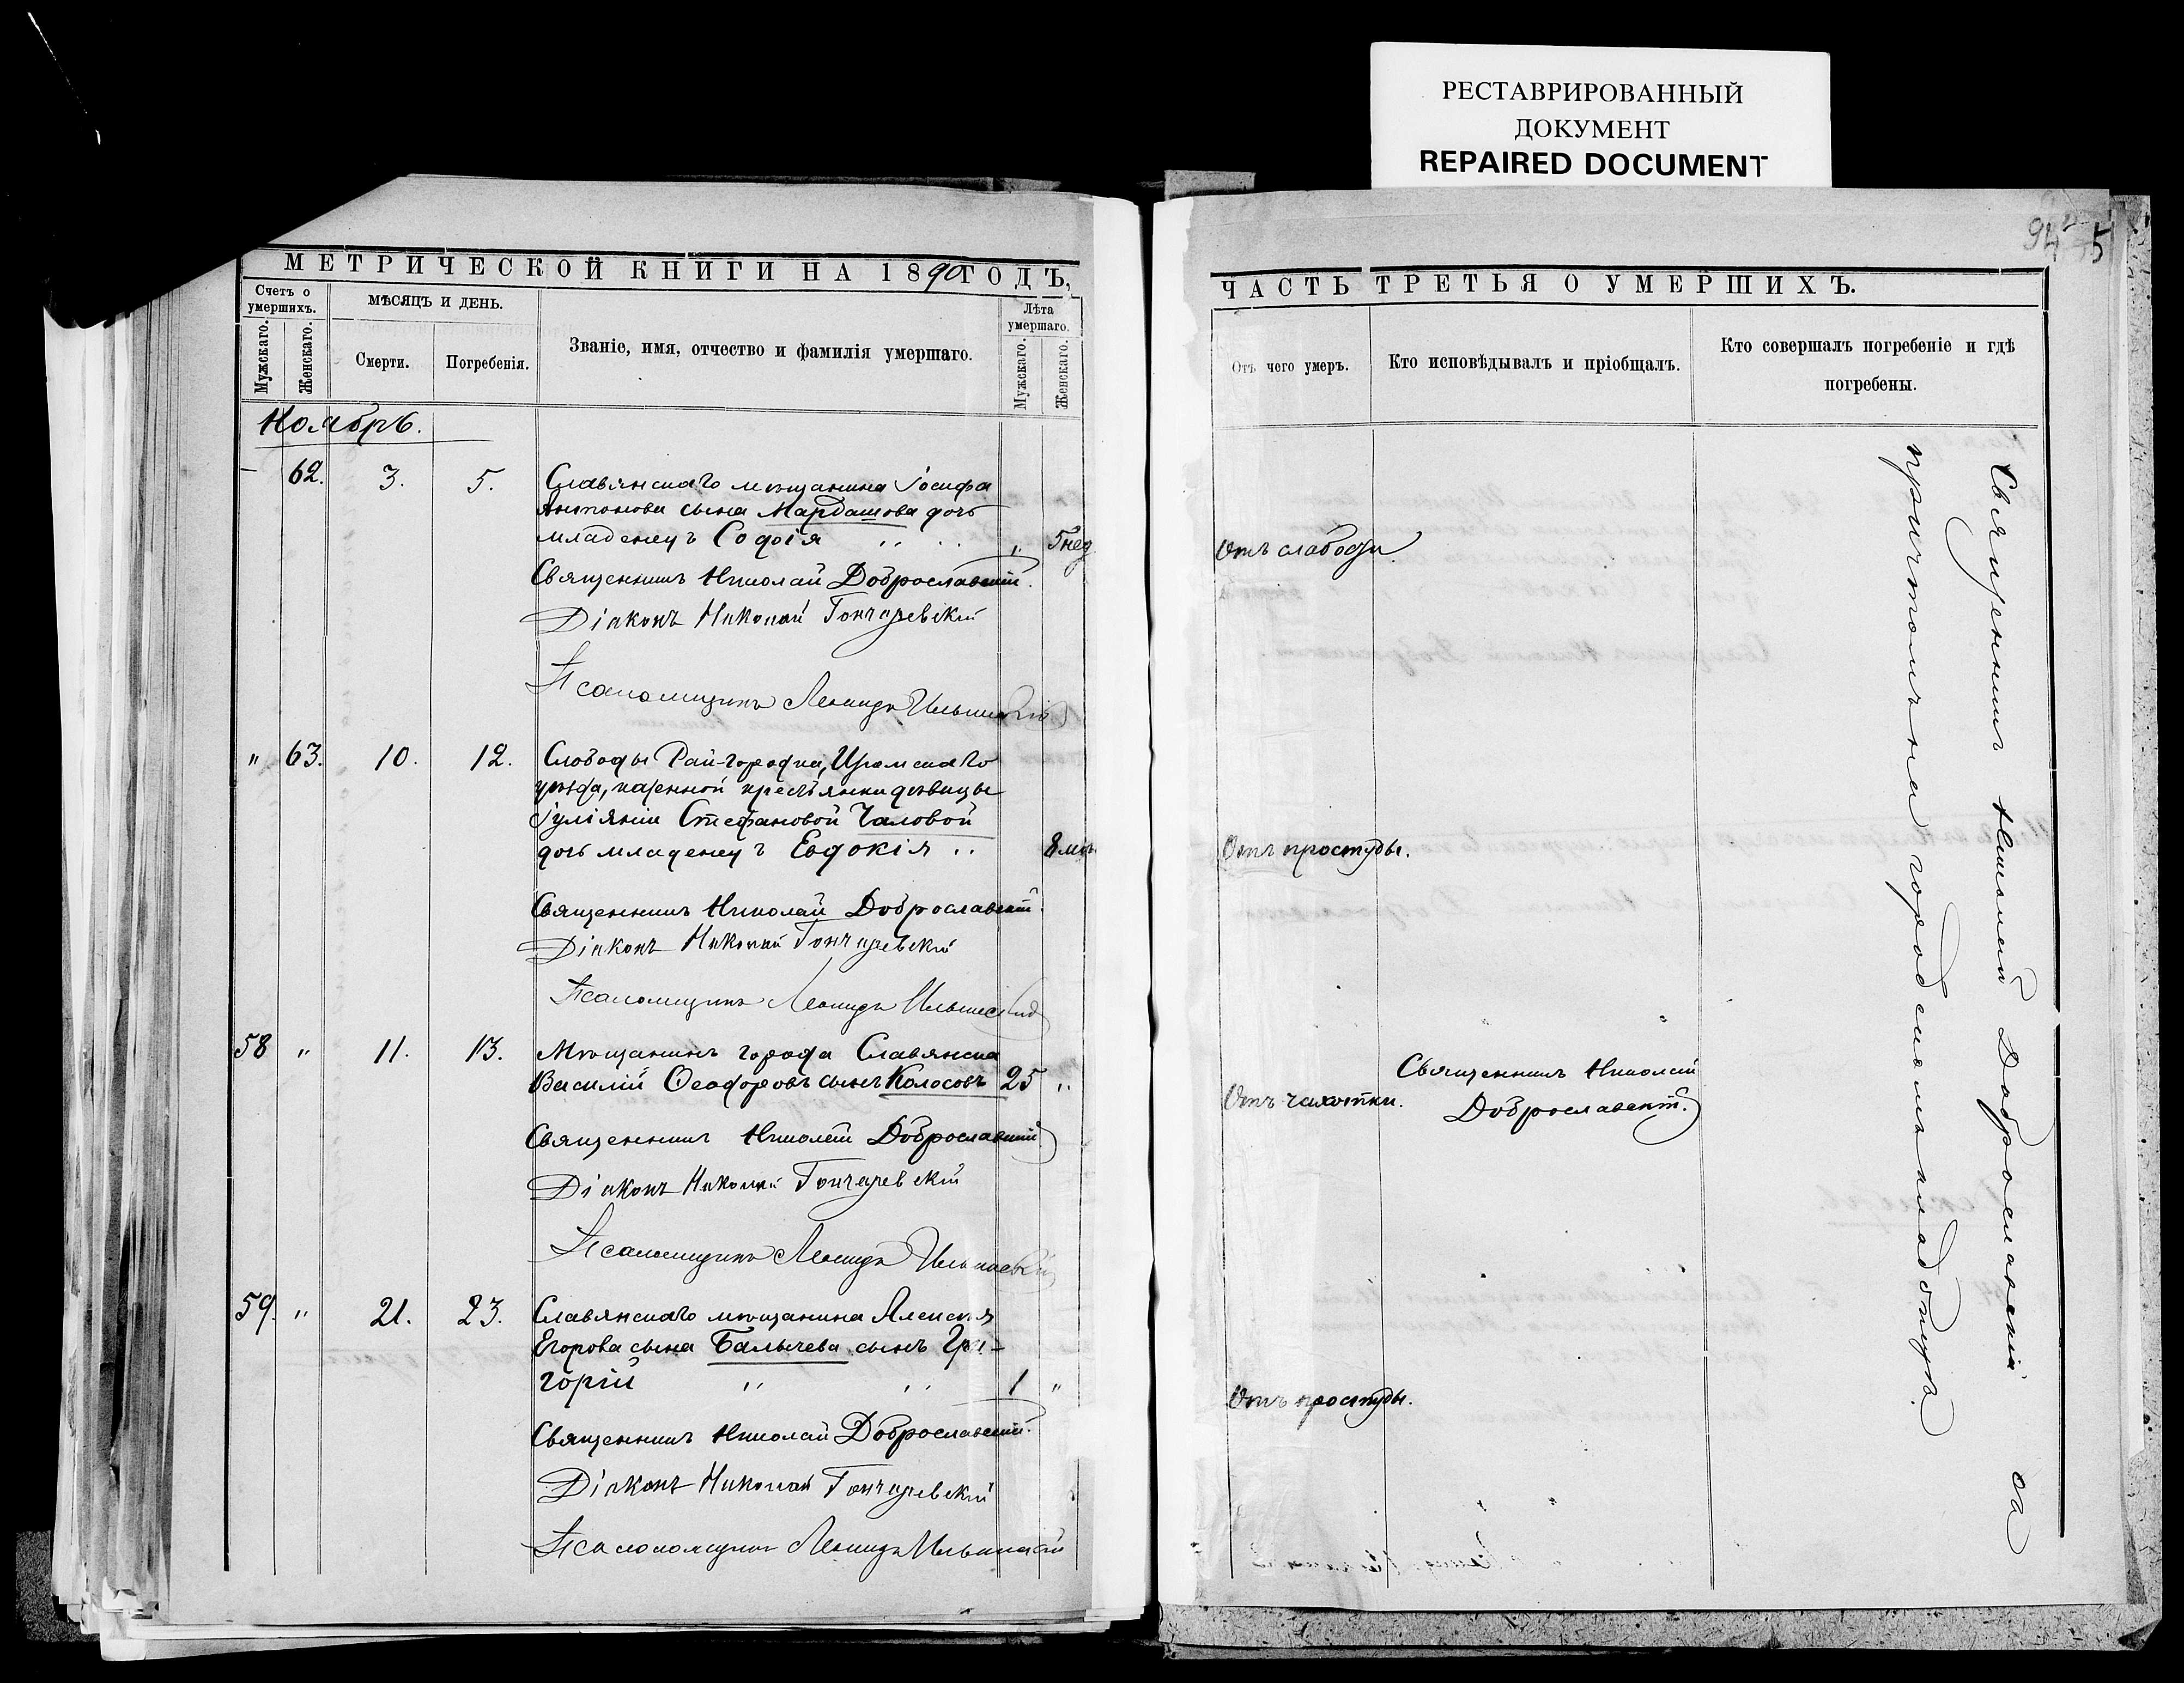 РЕСТАВРИРОВАННЫЙ
ДОКУМЕНТ
REPAIRED DOCUMENT
94
5
МЕТРИЧЕСКОЙ КНИГИ НА 1890 ГОДЪ,
Счетъ о умершихъ.
Мужскаго.
Женскаго.
МѢСЯЦЪ И ДЕНЬ.
Смерти.
Погребенія.
Званіе, имя, отчество и фамилія умершаго.
Лѣта умершаго.
Мужскаго.
Женскаго.
Ноябрь.
– 62. 3. 5. Славянскаго мѣщанина Іосифа
Антонова сына Мардашова дочь
младенецъ Софія " " " 5 нед.
Священникъ Николай Доброславскій.
Діаконъ Николай Гончаревскій
Псаломщикъ Леонидъ Ильинскій
" 63. 10. 12. Слободы Рай-городка, Изюмскаго
уѣзда, казенной крестьянки дѣвицы
Іуліяніи Стефановой Чаловой
дочь младенецъ Евдокія " 8 мѣс.
Священникъ Николай Доброславскій.
Діаконъ Николай Гончаревскій
Псаломщикъ Леонидъ Ильинскій
58 " 11. 13. Мѣщанинъ города Славянска
Василій Ѳеодоровъ сынъ Колосовъ 25 "
Священникъ Николай Доброславскій
Діаконъ Николай Гончаревскій
Псаломщикъ Леонидъ Ильинскій
59. " 21. 23. Славянскаго мѣщанина Алексѣя
Егорова сына Балычева сынъ Гри-
горій " " 1 "
Священникъ Николай Доброславскій.
Діаконъ Николай Гончаревскій
Псаломщикъ Леонидъ Ильинскій
ЧАСТЬ ТРЕТЬЯ О УМЕРШИХЪ.
Отъ чего умеръ.
Кто исповѣдывалъ и пріобщалъ.
Кто совершалъ погребеніе и гдѣ
погребены.
Отъ слабости.
Отъ простуды.
Отъ чахотки.
Священникъ Николай
Доброславскій.
Отъ простуды.
Священникъ Николай Доброславскій съ
причтомъ на городскомъ кладбищѣ.